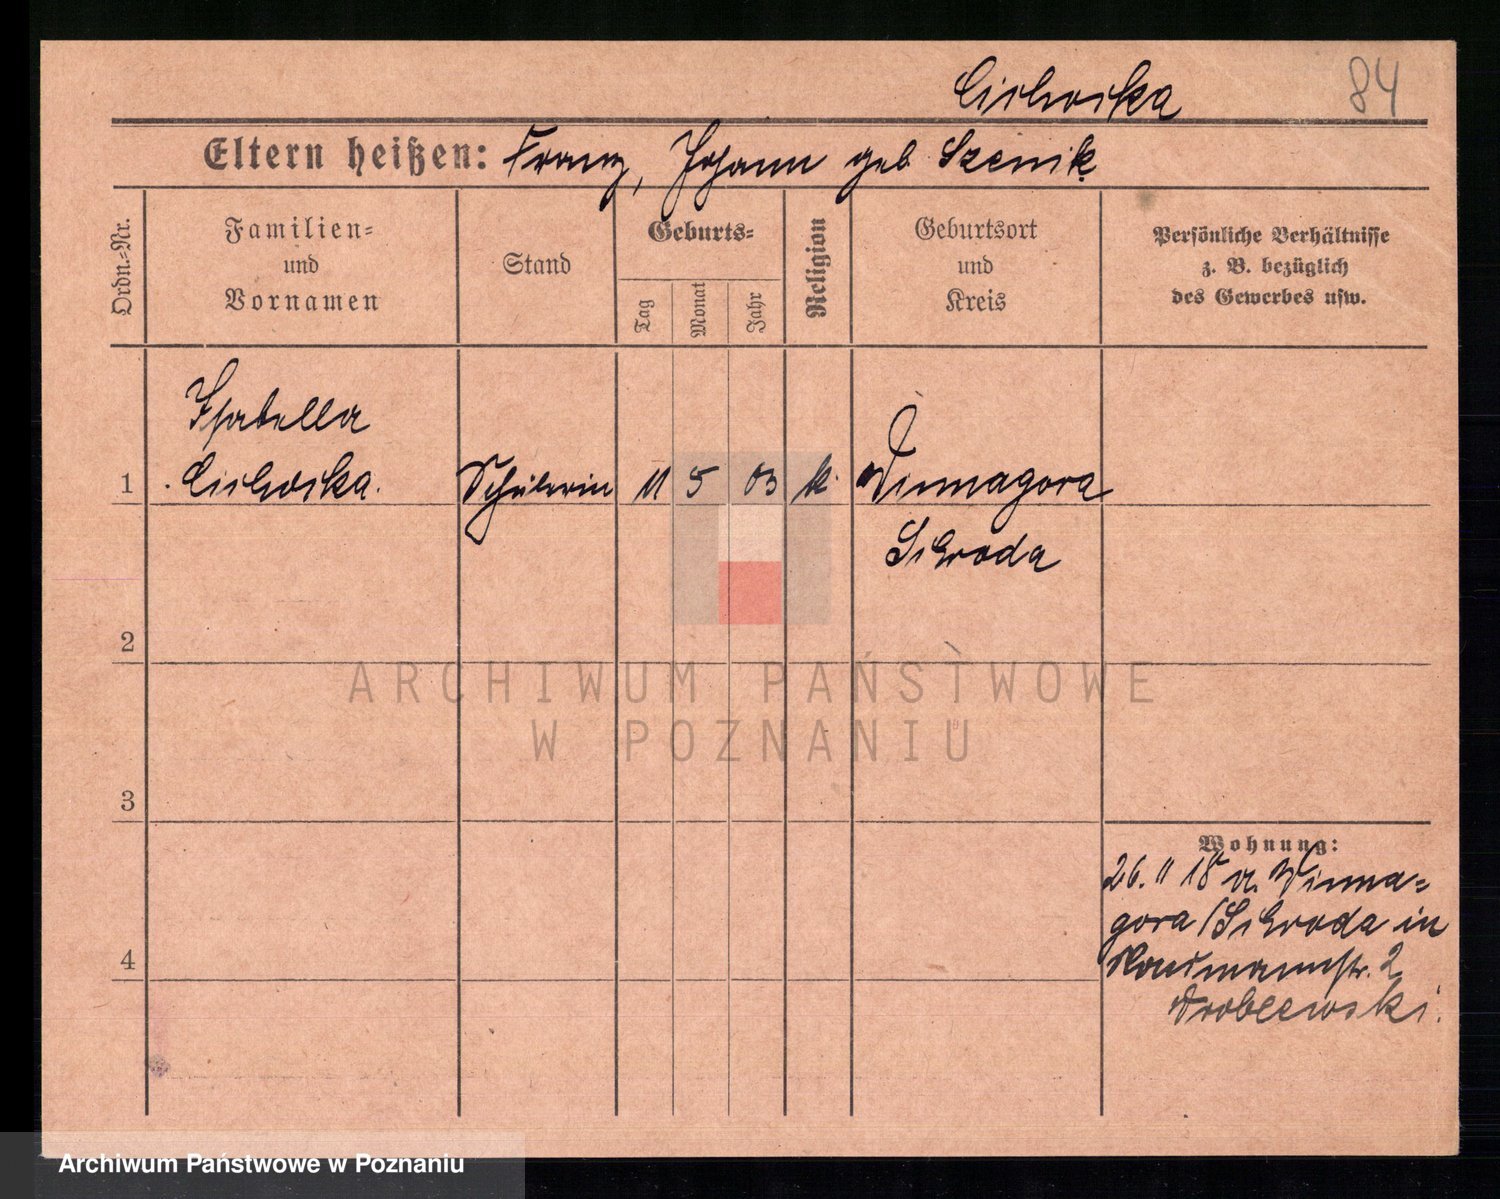 Cichorska
84
Eltern heißen: Franz, Johann geb Szenik
Ordn.-Nr.
Familien-
und
Vornamen
Stand
Geburts-
Tag
Monat
Jahr
Religion
Geburtsort
und
Kreis
Persönliche Verhältnisse
z. B. bezüglich
des Gewerbes usw.
Isabella
1 Cichorska. Schülerin 11 5 03 k. Winnagora
Schroda
2
3
4
Wohnung:
26. 11 18 v. Winna-
gora/Schroda in
Naumannstr. 2
Wroblewski.
ARCHIWUM PAŃSTWOWE
W POZNANIU
Archiwum Państwowe w Poznaniu